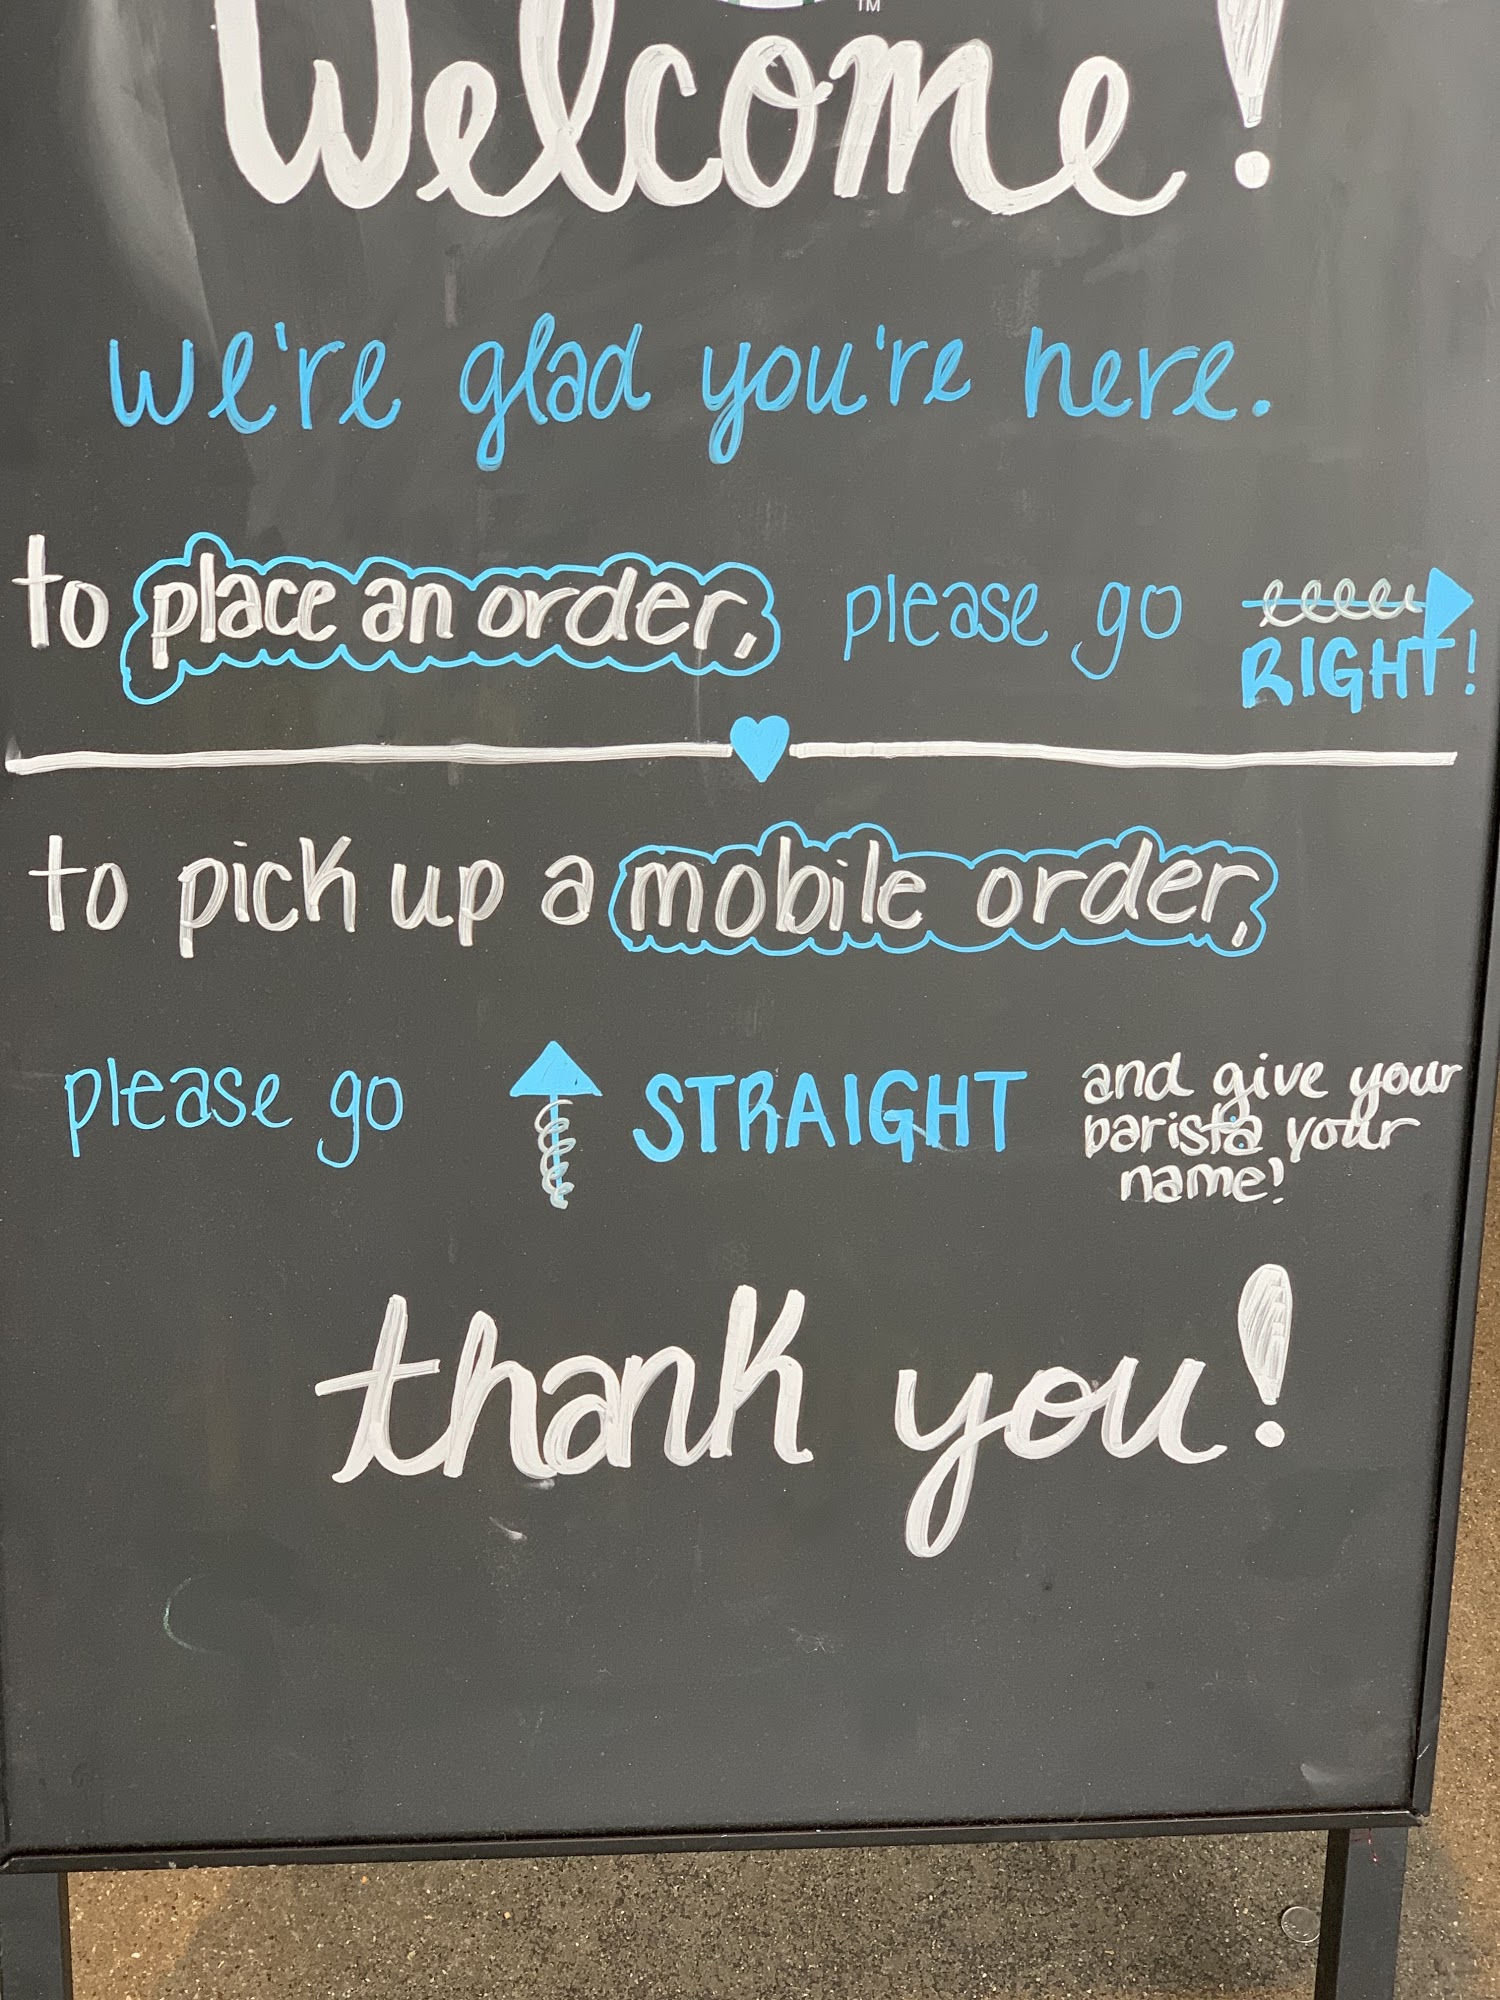 TM
Welcome!
we're glad you're here.
to place an order, please go RIGHT!
to pick up a mobile order,
please go STRAIGHT and give your
barista your
name!
thank you!